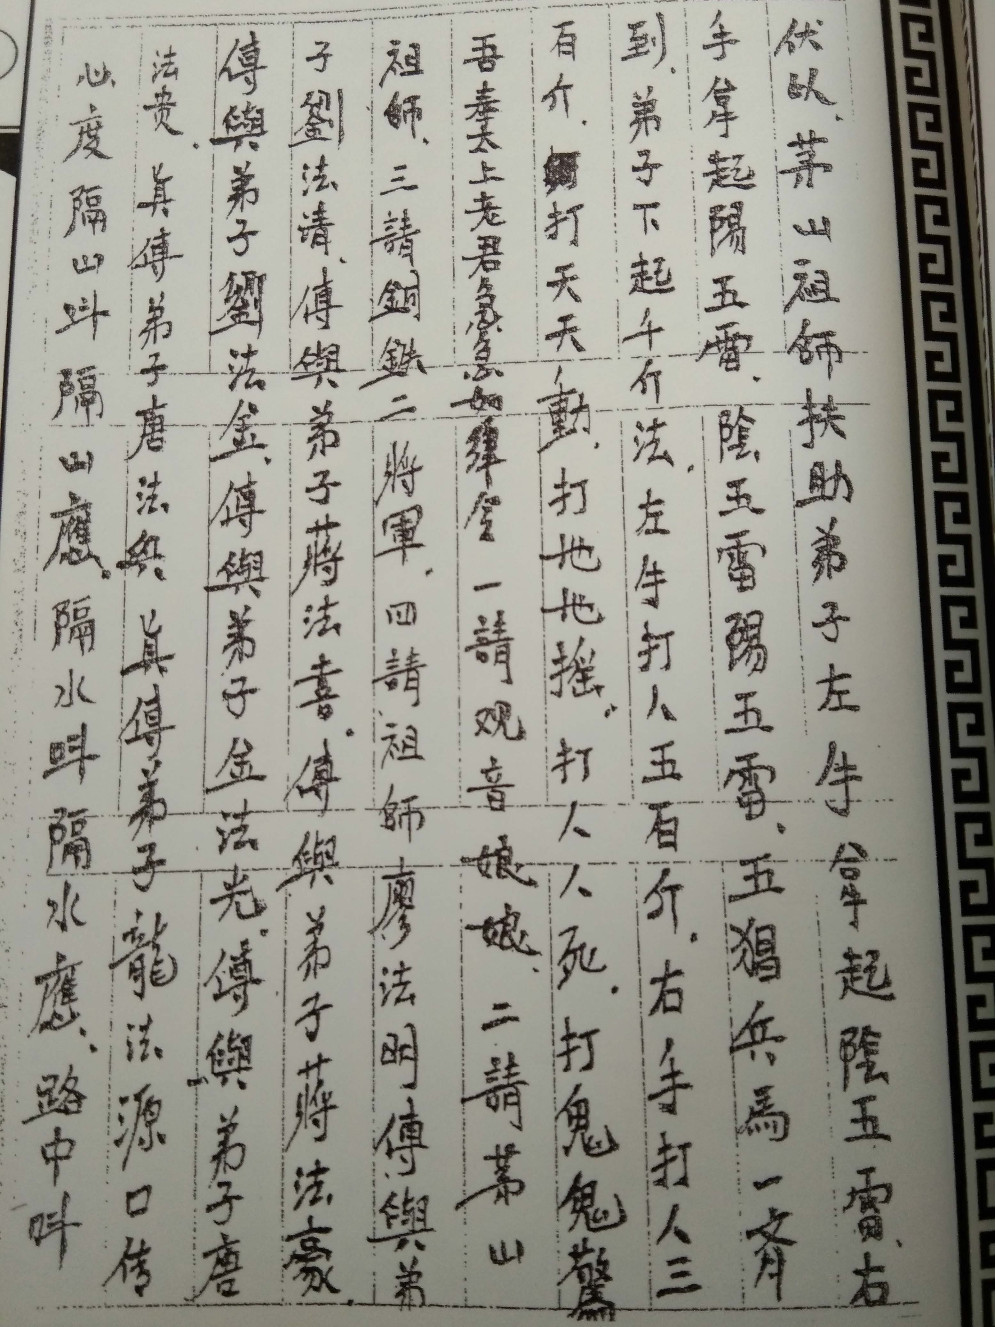 伏以、茅山祖師扶助弟子左手拿起陰五雷、右
手拿起陽五雷、陰五雷陽五雷、五猖兵馬一齊
到、弟子下起千斤法、左手打人五百斤、右手打人三
百斤、打天天動、打地地摇、打人人死、打鬼鬼驚
吾奉太上老君急急如律令 一請观音娘娘、二請茅山
祖師、三請銅鉄二將軍、四請祖師廖法明傳與弟
子劉法清、傳與弟子蒋法喜、傳與弟子蒋法豪、
傳與弟子劉法金、傳與弟子金法光、傳與弟子唐
法贵、真傳弟子唐法兵 真傳弟子龍法源口传
心度 隔山呌隔山應、隔水呌隔水應、路中呌